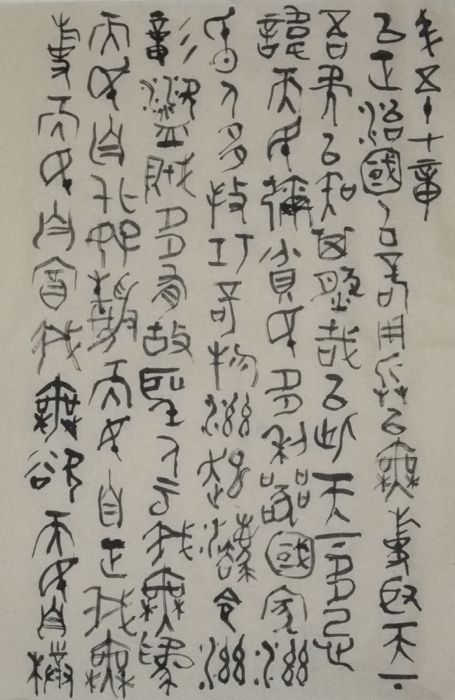 五十七章
以正治國以奇用兵以無事取天下
吾何以知其然哉以此天下多忌
諱而民彌貧民多利器國家滋
昏人多技巧奇物滋起法令滋
彰盜賊多有故聖人云我無為
而民自化好靜而民自正我無
事而民自富我無欲而民自樸